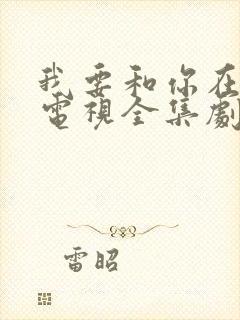 我要和你在
電視全集劇
雷昭